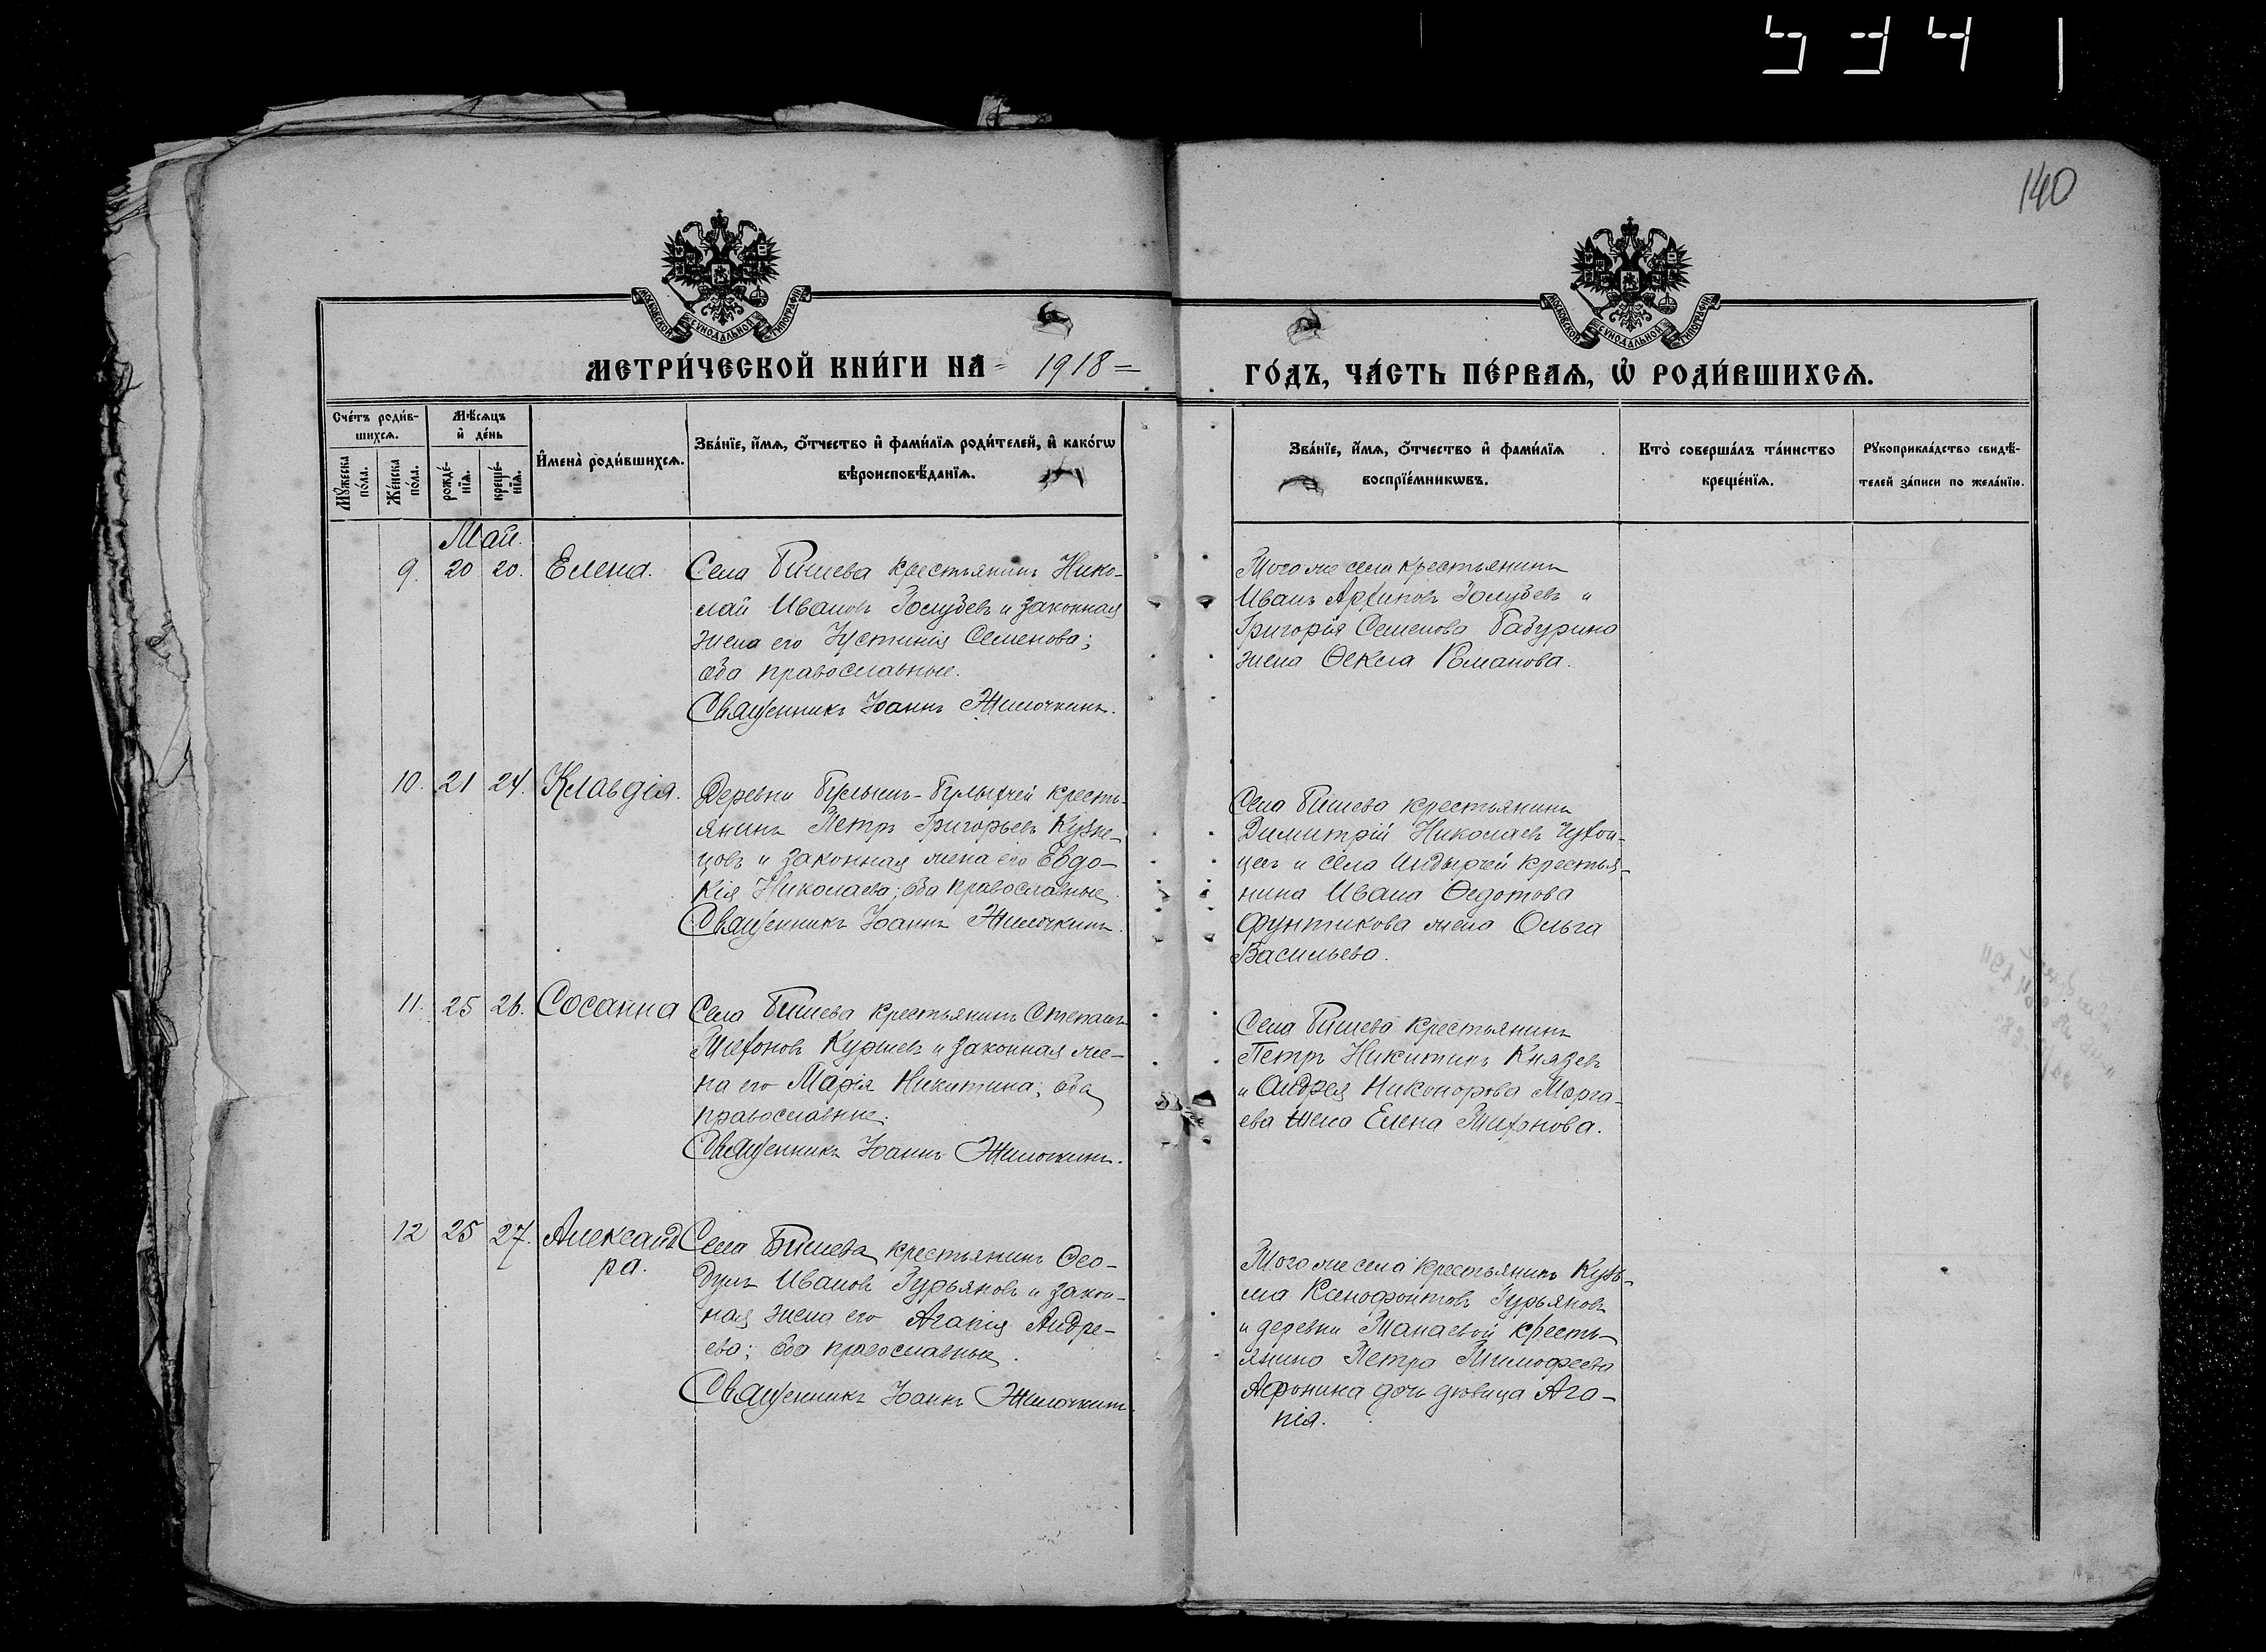 534
140
МОСКОВСКОЙ СѴНОДАЛЬНОЙ ТИПОГРАФІИ
МОСКОВСКОЙ СѴНОДАЛЬНОЙ ТИПОГРАФІИ
МЕТРИ́ЧЕСКОЙ КНИ́ГИ НА 1918
ГО́ДЪ, ЧА́СТЬ ПЕ́РВАѦ, Ѽ РОДИ́ВШИХСѦ.
Сче́тъ роди́в-
шихсѧ.
Мꙋ́жеска
по́ла.
Же́нска
по́ла.
Мѣ́сѧцъ
и҆ де́нь
рожде́-
нїѧ.
креще́-
нїѧ.
И҆мена̀ роди́вшихсѧ.
Зва́нїе, и҆́мѧ, ѻ҆́тчество и҆ фами́лїѧ роди́телей, и҆ како́гѡ
вѣроисповѣ́данїѧ.
Зва́нїе, и҆́мѧ, ѻ҆́тчество и҆ фами́лїѧ
воспрїе́мникѡвъ.
Кто̀ соверша́лъ та́инство
креще́нїѧ.
Рꙋкоприкла́дство свидѣ́-
телей за́писи по жела́нїю.
Май.
9. 20 20. Елена.
Села Бишева крестьянинъ Нико-
лай Ивановъ Голубевъ и законная
жена его Іустинія Семенова;
оба православные.
Священникъ Іоаннъ Жилочкинъ.
Того же села крестьянинъ
Иванъ Архиповъ Голубевъ и
Григорья Семенова Бабурина
жена Ѳекла Романова.
10. 21 24. Клавдія.
Деревни Булымъ-Булыхчей кресть-
янинъ Петръ Григорьевъ Кузне-
цовъ и законная жена его Евдо-
кія Николаева; оба православные.
Священникъ Іоаннъ Жилочкинъ.
Села Бишева крестьянинъ
Димитрій Николаевъ
и села крестья-
нина Ивана Ѳедотова
Фунтикова жена Ольга
Васильева.
11. 25 26. Сосанна
Села Бишева крестьянинъ Степанъ
Тихоновъ Куршевъ и законная же-
на его Марія Никитина; оба
православные.
Священникъ Іоаннъ Жилочкинъ.
Села Бишева крестьянинъ
Петръ Никитинъ Князевъ
и Андрея Никонорова Морга-
ева жена Елена Тихонова.
12 25 27. Александ
ра.
Села Бишева крестьянинъ Ѳео-
дулъ Ивановъ Гурьяновъ и закон-
ная жена его Агапія Андре-
ева; оба православные.
Священникъ Іоаннъ Жилочкинъ.
Того же села крестьянинъ Кузь-
ма Ксенофонтовъ Гурьяновъ
и деревни Танаевой кресть-
янина Петра Тимофеева
Афонина дочь дѣвица Ага-
пія.